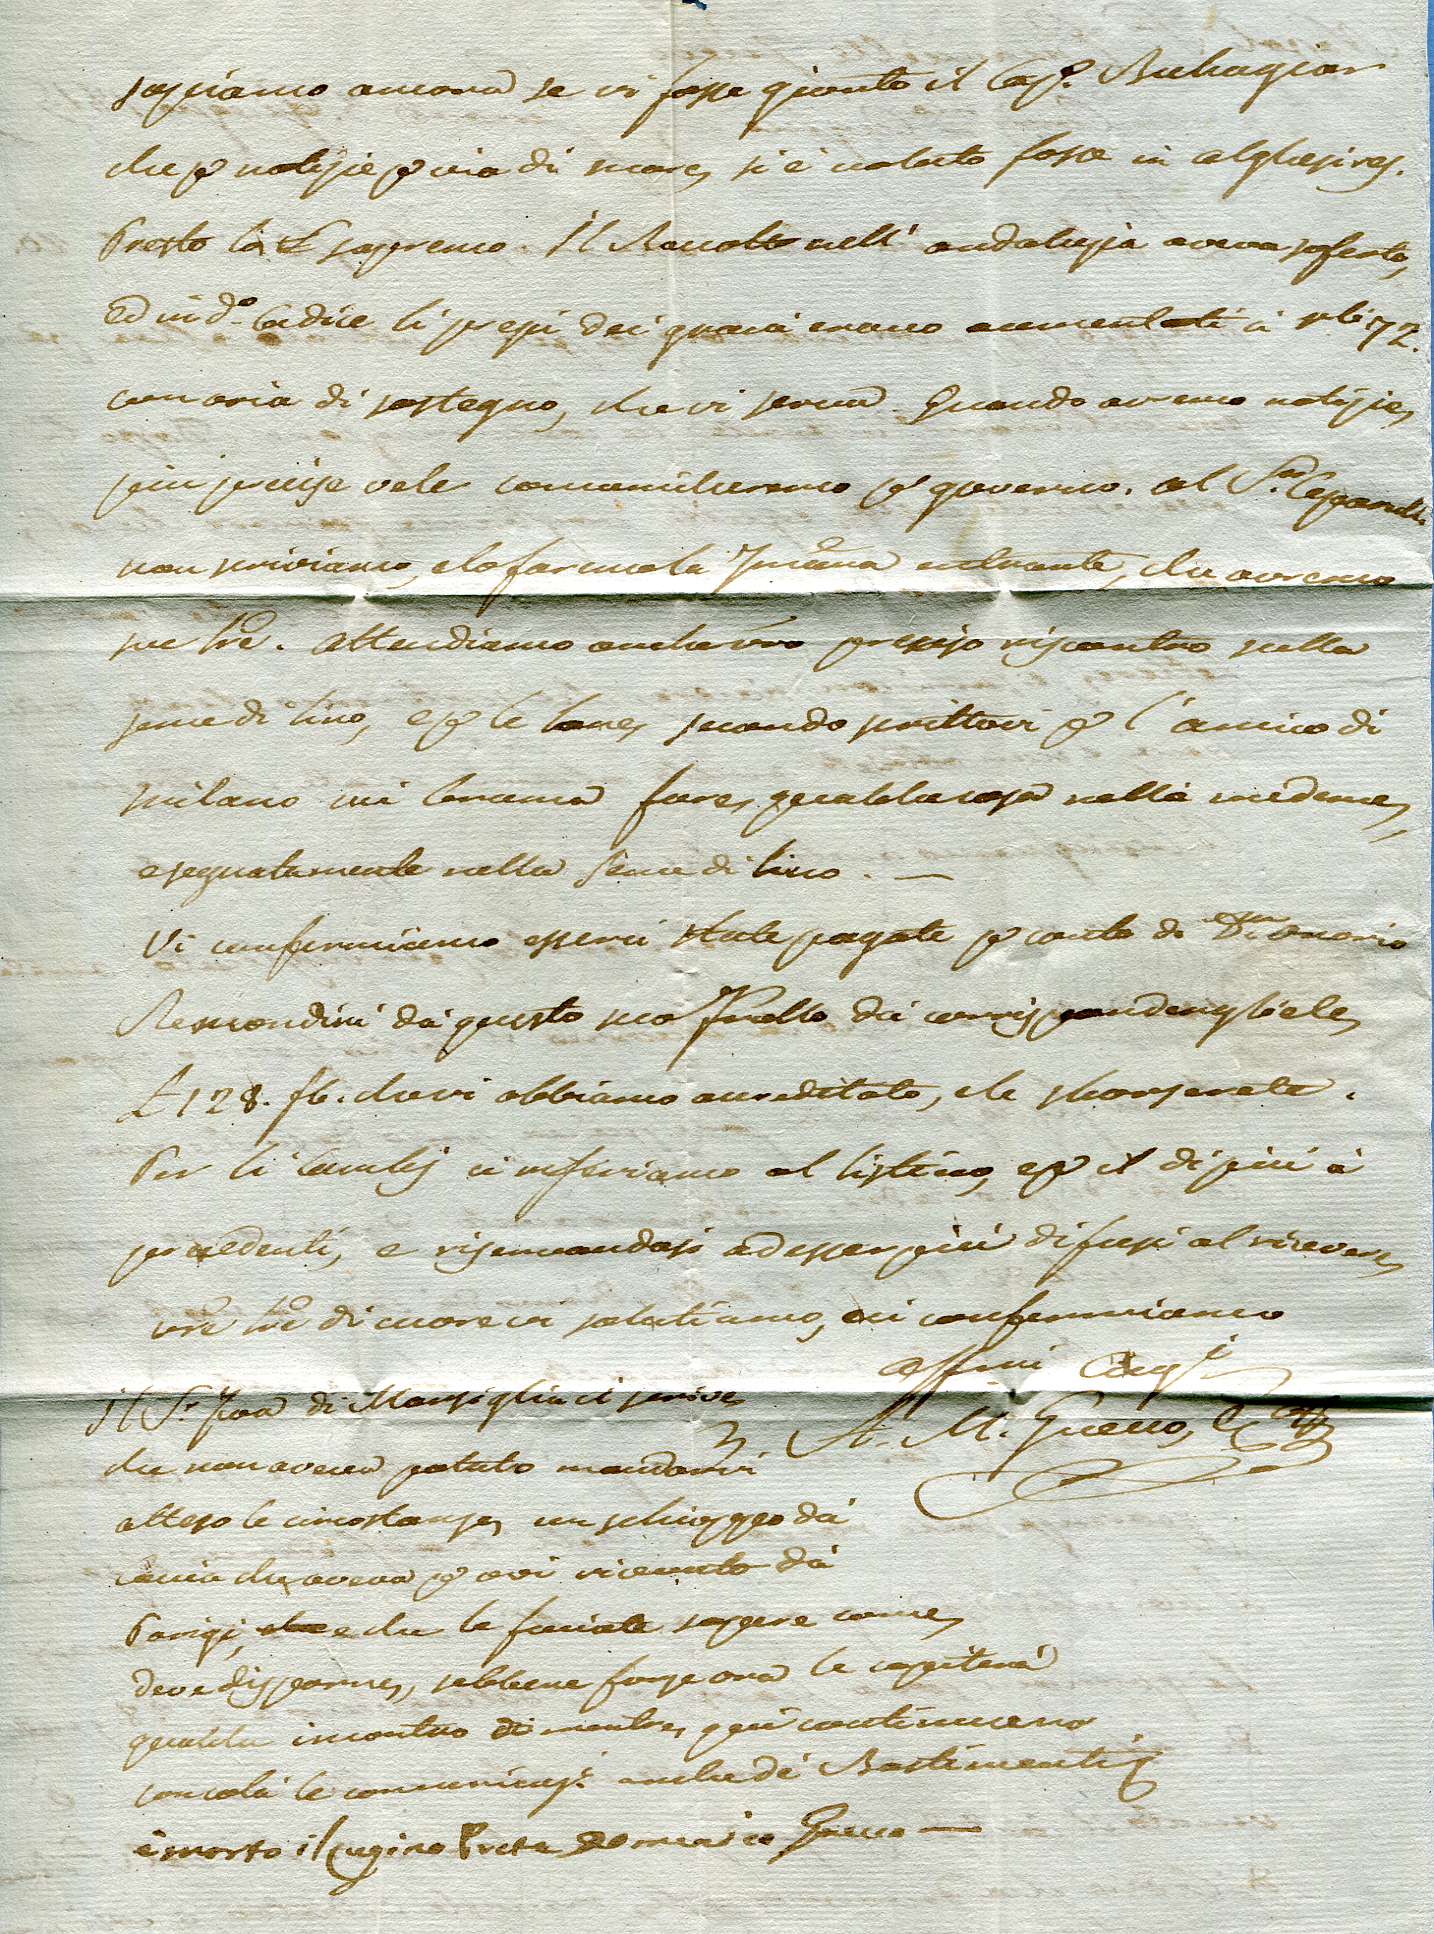 sappiamo ancora se vi fosse giunto il Cap.º Buhagiar
che p notizie p via di mare, si è voluto fosse in alghesires.
Presto lò sapremo. Il Racolto nell' andaluzia aveva soferto,
ed in d.º Cadice li prezzi dei grani erano aumentati à rbi 72.
con aria di sostegno, che vi serva. Quando avremo notizie,
più precise vele comunicheremo p governo. al S.r
non scriviamo, elo faremo la 7mana entrante, che avremo
sue lre. Attendiamo anche vro preciso riscontro sulla
seme di lino, e p le lane, secondo scrittovi p l'amico di
Milano mi brama fare, qualche cosa nella medeme,
e segnatamente nella Seme di lino. —
Vi confermiamo esserci state pagate p conto di Dn onorio
Remondini dà questo suo Fratello dà corrispondenzbiele,
£ 128. fb. che vi abbiamo accreditato, ele
Per li Cambj ci riferiamo al listino, e p il di più à
precedenti, e riservandosi ad esser più difusi al ricevere,
vre lre di cuore vi salutiamo, e ci confermiamo
Affmi Cug.i
A. M. Grecco, e C.
il S.r di Marsiglia ci scrive,
che non aveva potuto mandarvi
atteso le circostanze, un schioppo dà
cacia che aveva p voi ricevuto dà
Parigi, e che le faciate sapere come,
deve disporne, sebbene forse ora le capiterà
qualche incontro di mentre, quì continuano
con colà le comunicaz.i anche dè Bastimenti
è morto il Cugino Prete Domenico Grecco —